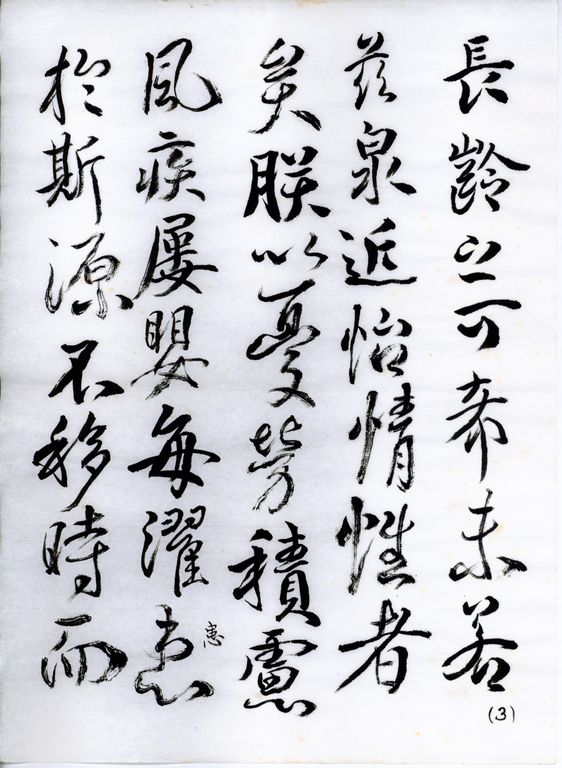 長齡之可希未若
茲泉近怡情性者
矣朕以憂勞積慮
風疾屢嬰每濯患
患
於斯源不移時而
(3)